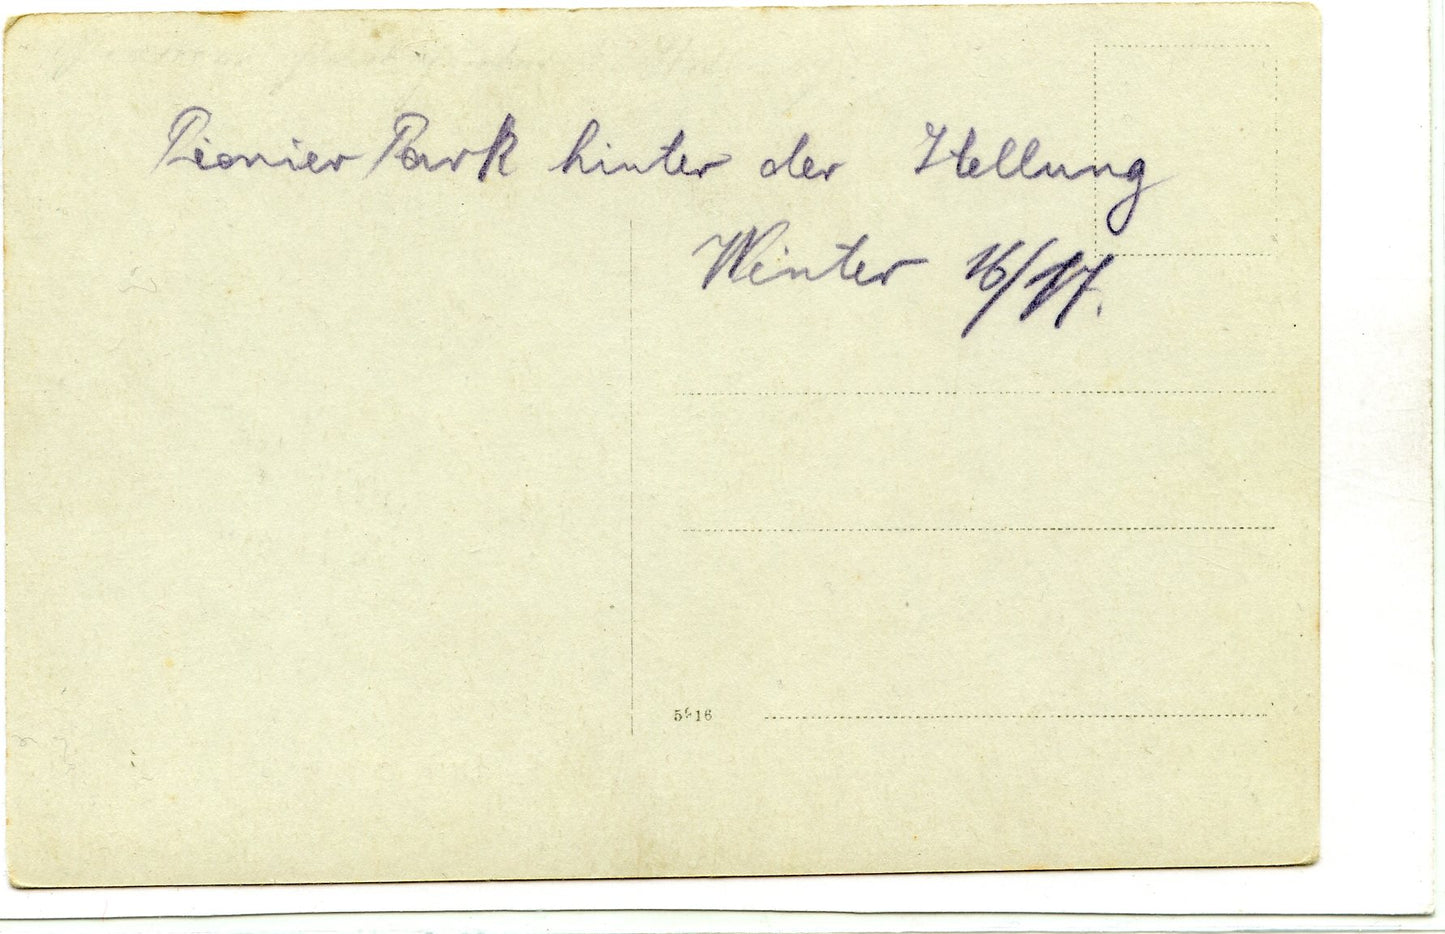 Pionier Park hinter der Stellung
Winter 16/17.
5 16